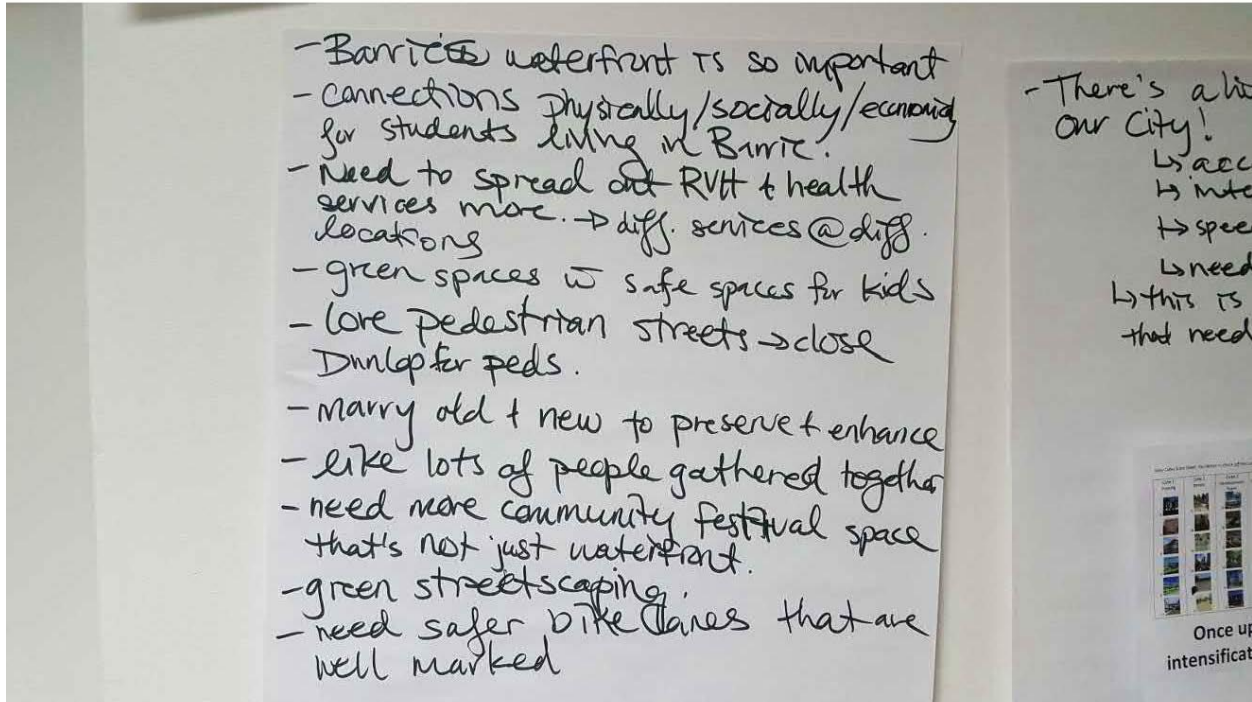 - Barrie's waterfront is so important
- connections physically/socially/economically
for students living in Barrie.
- Need to spread out RVH + health
services more. → diff. services @ diff.
locations
- green spaces w̅ safe spaces for kids
- love pedestrian streets → close
Dunlop for peds.
- marry old + new to preserve + enhance
- like lots of people gathered together
- need more community festival space
that's not just waterfront.
- green streetscaping.
- need safer bike lanes that are
well marked
- There's a
our City!
↳ acc
↳ inte
↳ spee
↳ need
↳ this is
that need
Once up
intensificat